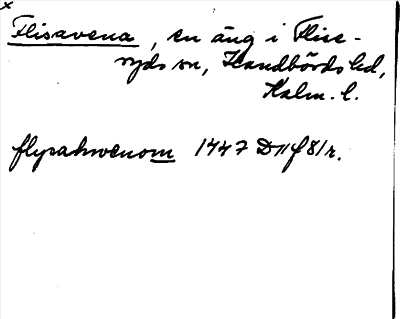 x
Flisavena, en äng i Flise-
ryds sn, Handbörds hd,
Kalm. l.
flysahwenom 1447 D11 f 81r.